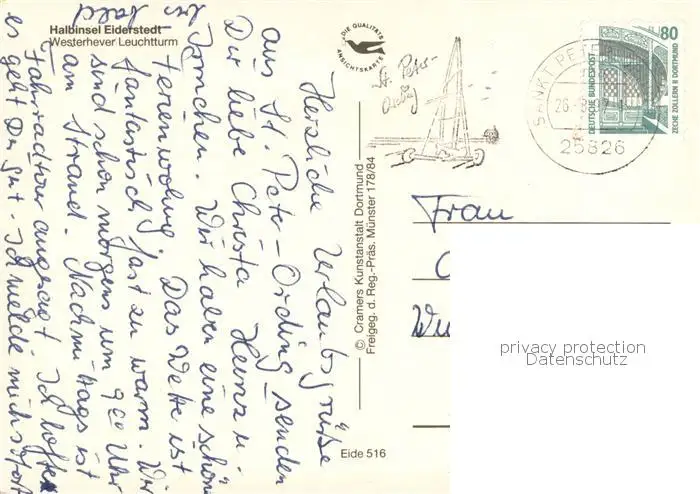 Halbinsel Eiderstedt
Westerhever Leuchtturm
DIE QUALITÄTS
ANSICHTSKARTE
St. Peter-
Ording
SANKT PETER
25826
80
DEUTSCHE BUNDESPOST
ZECHE ZOLLERN II DORTMUND
Herzliche Urlaubsgrüße
aus St. Peter-Ording senden
Dir liebe Christa Heinz u.
Irmchen. Wir haben eine schöne
Ferienwohng. Das Wetter ist
fantastisch, fast zu warm. Wir
sind schon morgens um 9 00 Uhr
am Strand. Nachmittags ist
Fahrradtour angesagt. Ich hoffe
es geht Dir gut. Ich melde mich sofort
© Cramers Kunstanstalt Dortmund
Freigeg. d. Reg.-Präs. Münster 178/84
Eide 516
Frau
privacy protection
Datenschutz